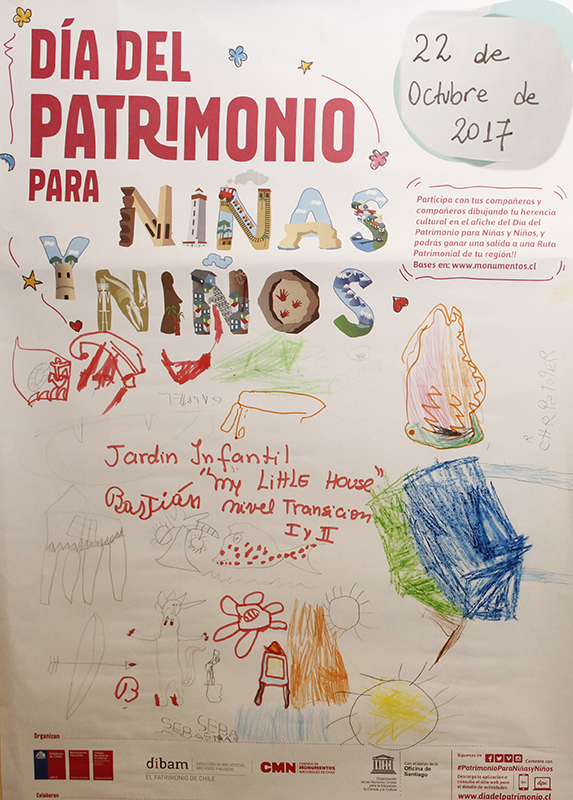 DÍA DEL
PATRIMONIO
PARA NIÑAS
Y NIÑOS
22 de
Octubre de
2017
Participa con tus compañeras y
compañeros dibujando tu herencia
cultural en el afiche del Día del
Patrimonio para Niñas y Niños, y
podrás ganar una salida a una Ruta
Patrimonial de tu región!!
Bases en: www.monumentos.cl
CHRISTOFER
Jardin Infantil
"my LittLE House"
Bastián nivel Transicion
I y II
B
SEBA
SEBASTIAN
Organizan
dibam
DIRECCIÓN DE BIBLIOTECAS,
ARCHIVOS Y MUSEOS
EL PATRIMONIO DE CHILE
CMN
CONSEJO DE
MONUMENTOS
NACIONALES DE CHILE
Organización
de las Naciones Unidas
para la Educación,
la Ciencia y la Cultura
Con el apoyo de la
Oficina de
Santiago
Síguenos en
Comenta con
#PatrimonioParaNiñasyNiños
Descarga la aplicación o
consulta el sitio web para
el detalle de actividades
www.diadelpatrimonio.cl
Colaboran